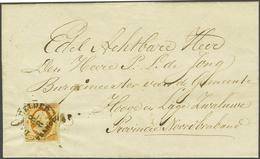 Edel Achtbare Heer
Den Heere S. L. de Jong
Burgemeester van de Gemeente
Hooge en Lage Zwaluwe
Provincie Noordbraband